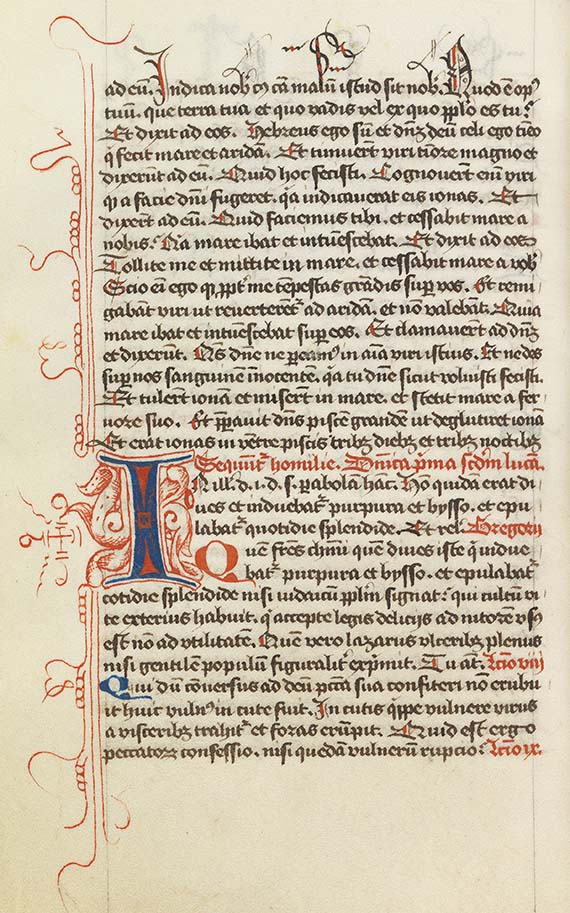 ad eū. Indica nob̄ cꝰ cā malū istud sit nob̄. Quod ē opꝰ
tuū. que terra tua et quo vadis vel ex quo pplo es tu.
Et dixit ad eos. Hebreus ego sū et dnꝫ deū celi ego tīeo
q̄ fecit mare et aridā. Et timuerūt viri tīore magno et
dixerūt ad eū. Quid hoc fecisti. Cognoverūt enī viri
qꝫ a facie dnī fugeret. q̄a indicauerat eis ionas. Et
dixerūt ad eū. Quid faciemus tibi. et cessabit mare a
nobis. Na mare ibat et intuescebat. Et dixit ad eos
Tollite me et mittite in mare. et cessabit mare a vob̄
Scio eī ego qꝫ ppt̄ me tēpestas grādis suꝑ vos. Et remi
gabāt viri ut reuerterent̄ ad aridā. et nō valebāt. Quia
mare ibat et intuescebat suꝑ eos. Et clamauerūt ad dnꝫ
et dixerūt. Q̄s dne ne ꝑeamꝰ in aīa viri istius. Et ne des
suꝑ nos sanguinē inocentē. q̄a tu dne sicut voluisti fecisti.
Et tulerūt ionā et miserūt in mare. et stetit mare a fer
uore suo. Et p̄parauit dns piscē grandē ut deglutiret ionā
Et erat ionas in vētre piscis tribꝫ diebꝫ et tribꝫ noctibꝫ
Sequūt̄ homilie. Dn̄ica p̄ma scdm lucā.
IN ill. d. i. d. s. ꝑabolā hāc. Hō quidā erat di
ues et induebat̄ purpura et bysso. et epu
labat̄ quotidie splendide. Et rel. Gregorij
Quē frēs chm̄i quē diues iste q̄ indue
bat̄ purpura et bysso. et epulabat̄
cotidie splendide nisi iudaicū pplm signat. qui cultū vi
te exterius habuit. q̄ accepte legis delicijs ad nitorē vsꝰ
est nō ad vtilitatē. Quē vero lazarus vlceribꝫ plenus
nisi gentilē populū figuralit̄ exp̄mit. Tu aūt. Lectio viij
Qui dū cōuersus ad deū pctā sua confiteri nō erubu
it huic vulnꝰ in cute fuit. In cutis q̄ppe vulnere virus
a visceribꝫ trahit̄ et foras erūpit. Quid est ergo
peccatorꝫ confessio. nisi quedā vulnerū rupcio. Lectio ix.